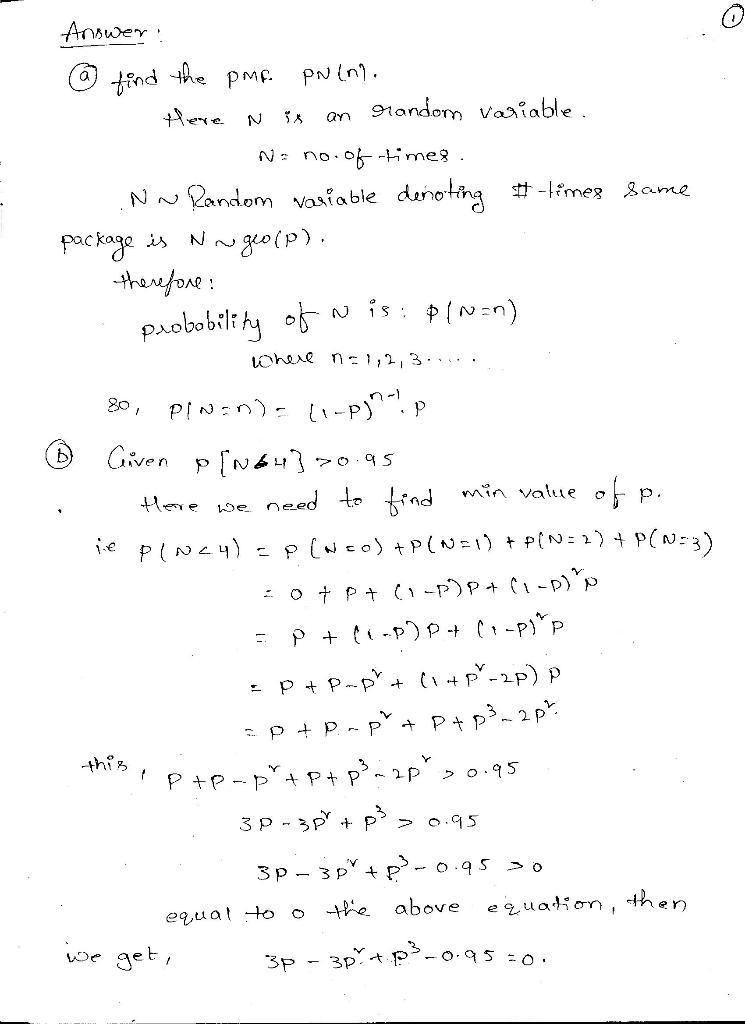 ①
Answer:
ⓐ find the pmf. PN(n).
Here N is an random variable.
N = no.of-times.
N ~ Random variable denoting #-times same
package is N ~ geo(p).
therefore:
probability of N is: p(N=n)
where n=1,2,3.....
so, P(N=n) = (1-p)ⁿ⁻¹.p
ⓑ Given p[N<4] >0.95
Here we need to find min value of p.
i.e P(N<4) = P(N=0)+P(N=1)+P(N=2)+P(N=3)
= 0 + P + (1-P)P + (1-P)²P
= P + (1-P)P + (1-P)²P
= P + P-P² + (1+P²-2P) P
= P + P - P² + P + P³ - 2P²
this, P+P-P²+P+P³-2P² > 0.95
3P - 3P² + P³ > 0.95
3P - 3P² + P³ - 0.95 >0
equal to 0 the above equation, then
we get, 3P - 3P² + P³ - 0.95 = 0.